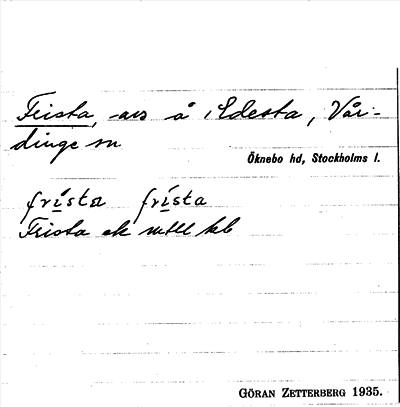 Frista, avs å Edesta, Vår-
dinge sn
Öknebo hd, Stockholms l.
frísta frísta
Frista ek
GÖRAN ZETTERBERG 1935.